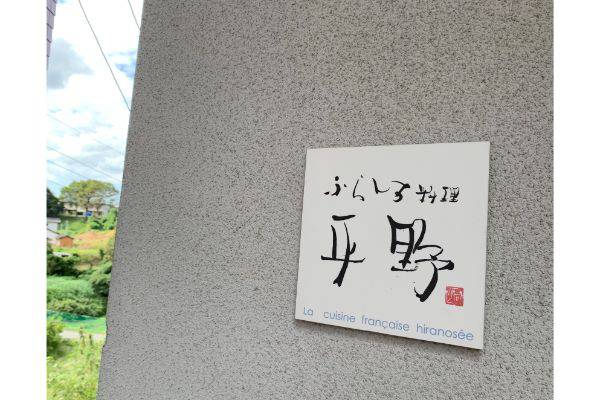 ふらんす料理
平野
La cuisine française hiranosée